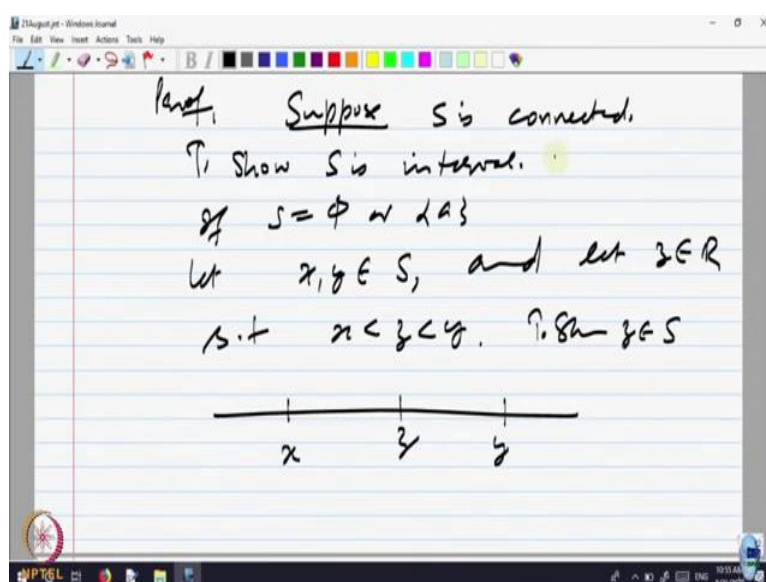 21August.jnt - Windows Journal
File Edit View Insert Actions Tools Help
B I
Proof, Suppose S is connected.
T, Show S is interval.
If S = ϕ or {a}
Let x, y ∈ S, and let z ∈ R
s.t x < z < y. T. Sh z ∈ S
x z y
NPTEL
ENG 10:55 AM